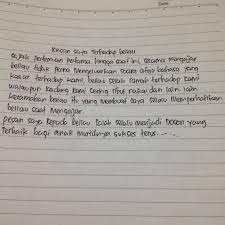 Kesan saya terhadap beliau
sejak pertemuan pertama hingga saat ini, selama mengajar
beliau tidak perna mengeluarkan suara atau bahasa yang
kasar terhadap kami, beliau tidak marah terhadap kami
walaupun kadang kami sering ribut, nakal dan lain lain
keramahan beliau itu yang membuat saya selalu memperhatikan
beliau saat mengajar.
pesan saya kepada beliau tidak selalu menjadi Dosen yang
terbaik bagi anak muridnya sukses terus.....